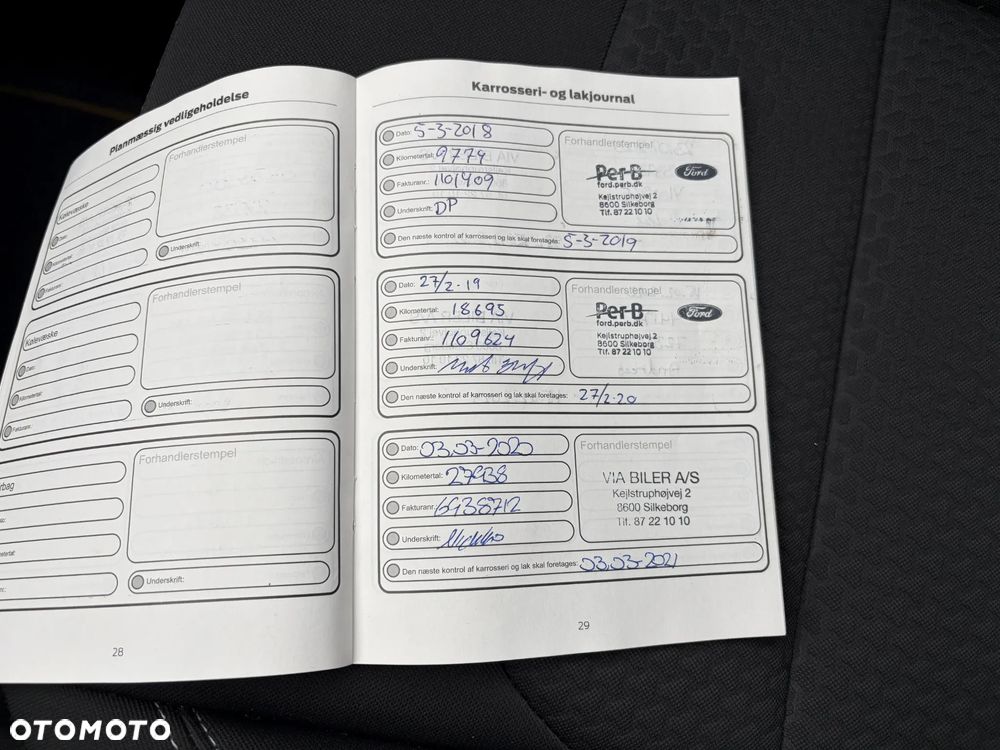 Planmæssig vedligeholdelse
Forhandlerstempel
Kølevæske
Dato:
Kilometertal:
Fakturanr.:
Underskrift:
Forhandlerstempel
Kølevæske
Dato:
Kilometertal:
Fakturanr.:
Underskrift:
Forhandlerstempel
Underskrift:
28
Karrosseri- og lakjournal
Dato: 5-3-2018
Kilometertal: 9774
Fakturanr.: 1101409
Underskrift: DP
Forhandlerstempel
Per-B
Ford
ford.perb.dk
Kejlstruphøjvej 2
8600 Silkeborg
Tlf. 87 22 10 10
Den næste kontrol af karrosseri og lak skal foretages: 5-3-2019
Dato: 27/2-19
Kilometertal: 18695
Fakturanr.: 1109624
Underskrift:
Forhandlerstempel
Per-B
Ford
ford.perb.dk
Kejlstruphøjvej 2
8600 Silkeborg
Tlf. 87 22 10 10
Den næste kontrol af karrosseri og lak skal foretages: 27/2-20
Dato: 03.03-2020
Kilometertal: 27938
Fakturanr.: 6938712
Underskrift:
Forhandlerstempel
VIA BILER A/S
Kejlstruphøjvej 2
8600 Silkeborg
Tlf. 87 22 10 10
Den næste kontrol af karrosseri og lak skal foretages: 03.03-2021
29
OTOMOTO